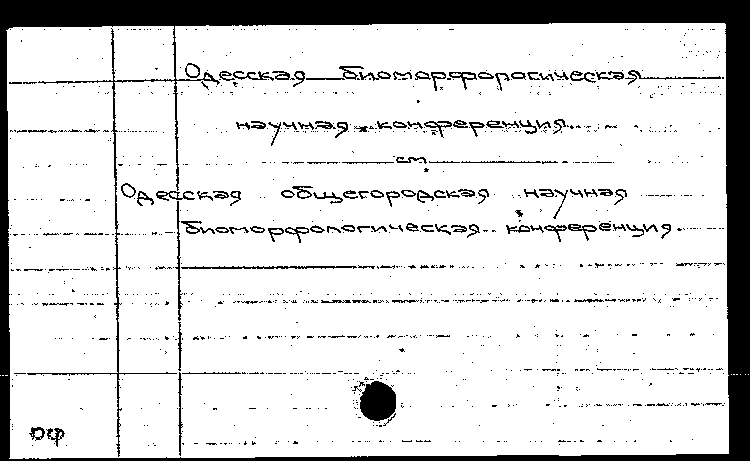 Одесская биоморфологическая
научная конференция.
см.
Одесская общегородская научная
биоморфологическая конференция.
ОФ